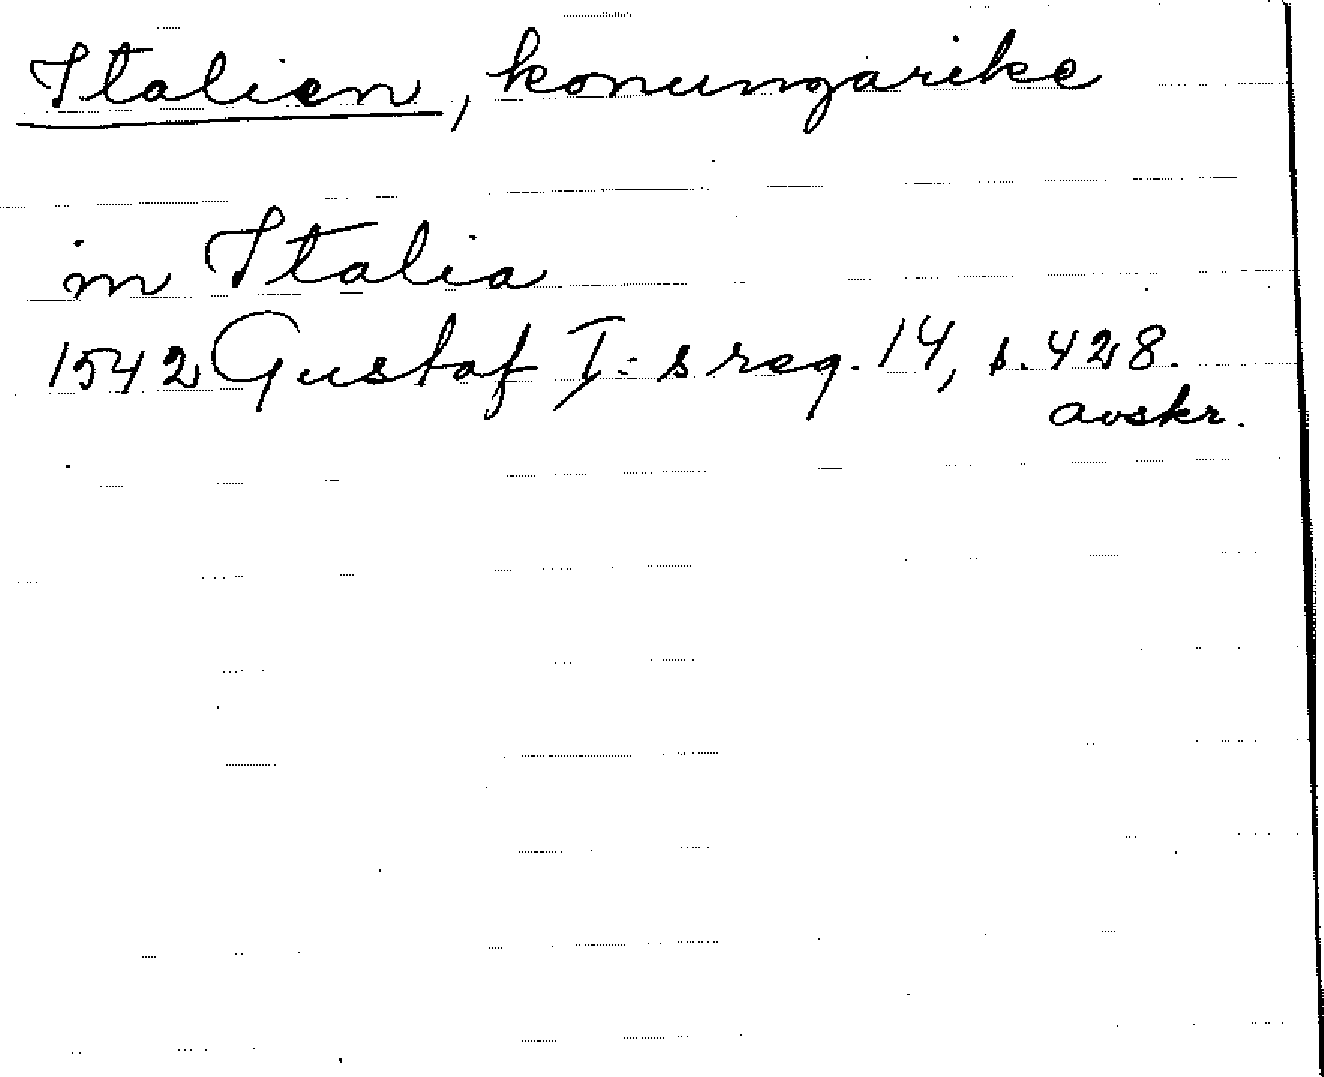 Italien, konungarike
in Italia
1542 Gustaf I:s reg. 14, s. 428.
avskr.